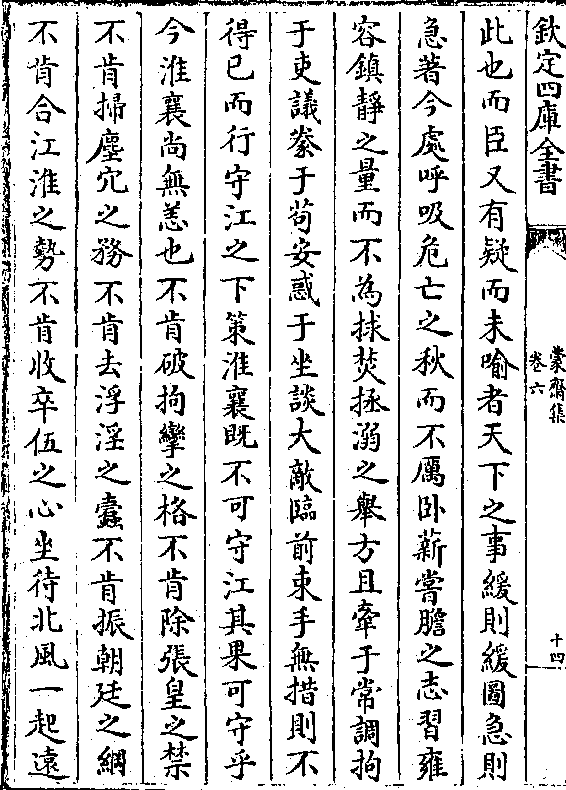 欽定四庫全書
蒙齋集
卷六
十四
此也而臣又有疑而未喻者天下之事緩則緩圖急則
急著今處呼吸危亡之秋而不厲卧薪嘗膽之志習雍
容鎮靜之量而不為拯焚拯溺之舉方且牽于常調拘
于吏議豢于苟安惑于坐談大敵臨前束手無措則不
得已而行守江之下策淮襄既不可守江其果可守乎
今淮襄尚無恙也不肯破拘攣之格不肯除張皇之禁
不肯掃塵冗之務不肯去浮淫之蠹不肯振朝廷之綱
不肯合江淮之勢不肯收卒伍之心坐待北風一起遠